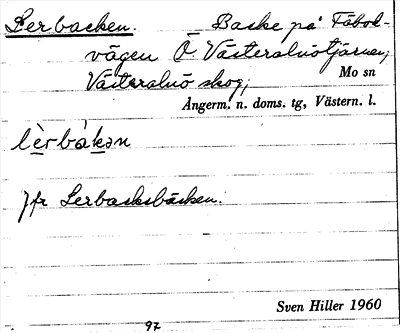 Lerbacken. Backe på Fäbod-
vägen Ö. Västeralnötjärnen,
Västeralnö skog, Mo sn
Ångerm. n. doms. tg, Västern. l.
lè̱rbàkən
Jfr Lerbacksbäcken.
Sven Hiller 1960
97